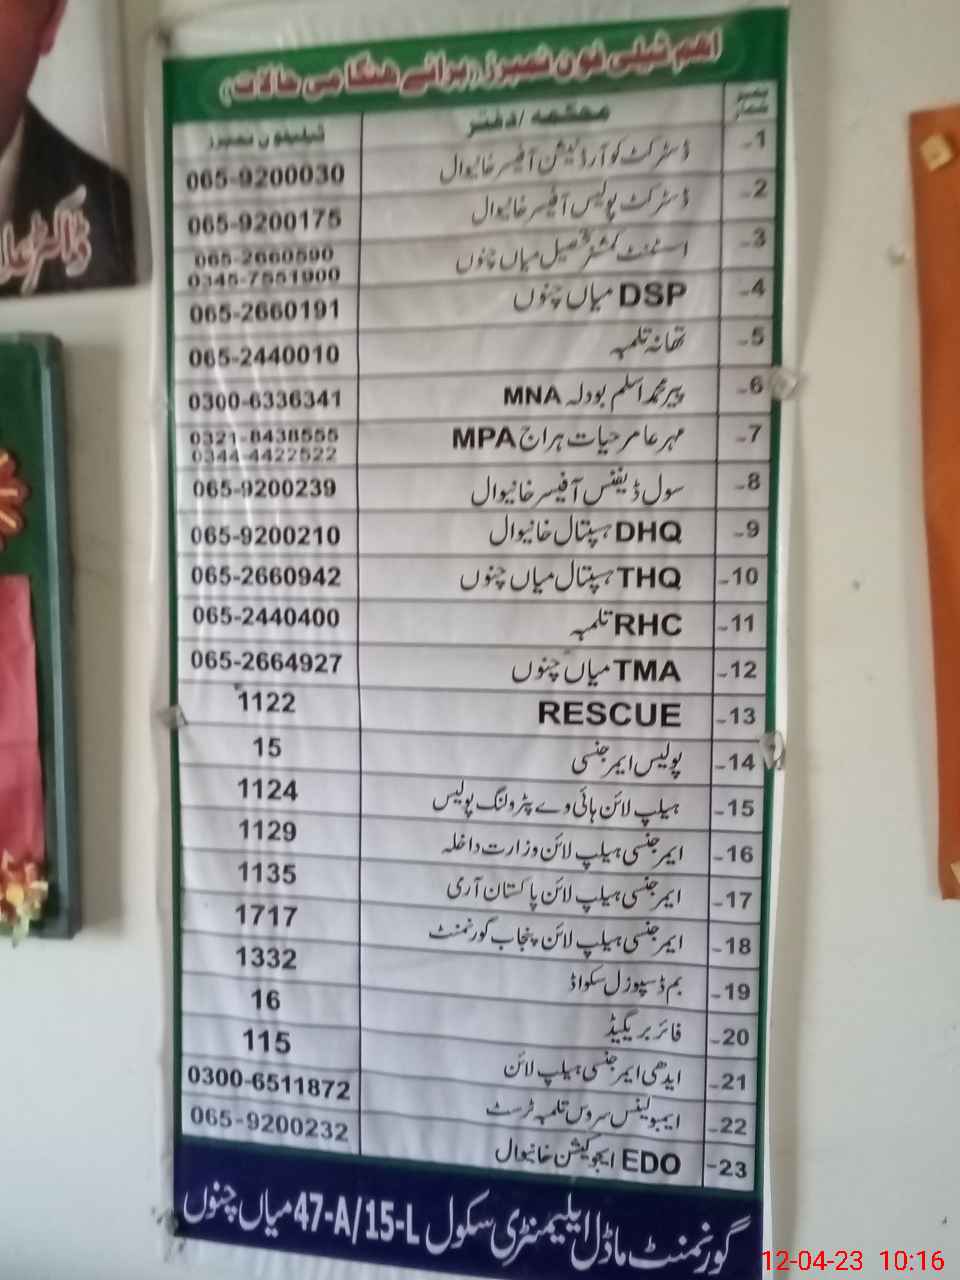 اہم ٹیلی فون نمبرز (برائے ہنگامی حالات)
نمبر شمار محکمہ / دفتر ٹیلیفون نمبرز
1- ڈسٹرکٹ کوآرڈینیشن آفیسر خانیوال 065-9200030
2- ڈسٹرکٹ پولیس آفیسر خانیوال 065-9200175
3- اسسٹنٹ کمشنر تحصیل میاں چنوں 065-2660590
0345-7551900
4- DSP میاں چنوں 065-2660191
5- تھانہ تلمبہ 065-2440010
6- پیر محمد اسلم بودلہ MNA 0300-6336341
7- مہر عامر حیات ہراج MPA 0321-8438555
0344-4422522
8- سول ڈیفنس آفیسر خانیوال 065-9200239
9- DHQ ہسپتال خانیوال 065-9200210
10- THQ ہسپتال میاں چنوں 065-2660942
11- RHC تلمبہ 065-2440400
12- TMA میاں چنوں 065-2664927
13- RESCUE 1122
14- پولیس ایمرجنسی 15
15- ہیلپ لائن ہائی وے پٹرولنگ پولیس 1124
16- ایمرجنسی ہیلپ لائن وزارت داخلہ 1129
17- ایمرجنسی ہیلپ لائن پاکستان آرمی 1135
18- ایمرجنسی ہیلپ لائن پنجاب گورنمنٹ 1717
19- بم ڈسپوزل سکواڈ 1332
20- فائر بریگیڈ 16
21- ایدھی ایمرجنسی ہیلپ لائن 115
22- ایمبولینس سروس تلمبہ ٹرسٹ 0300-6511872
23- EDO ایجوکیشن خانیوال 065-9200232
گورنمنٹ ماڈل ایلیمنٹری سکول 47-A/15-L میاں چنوں
ڈاکٹر
12-04-23 10:16